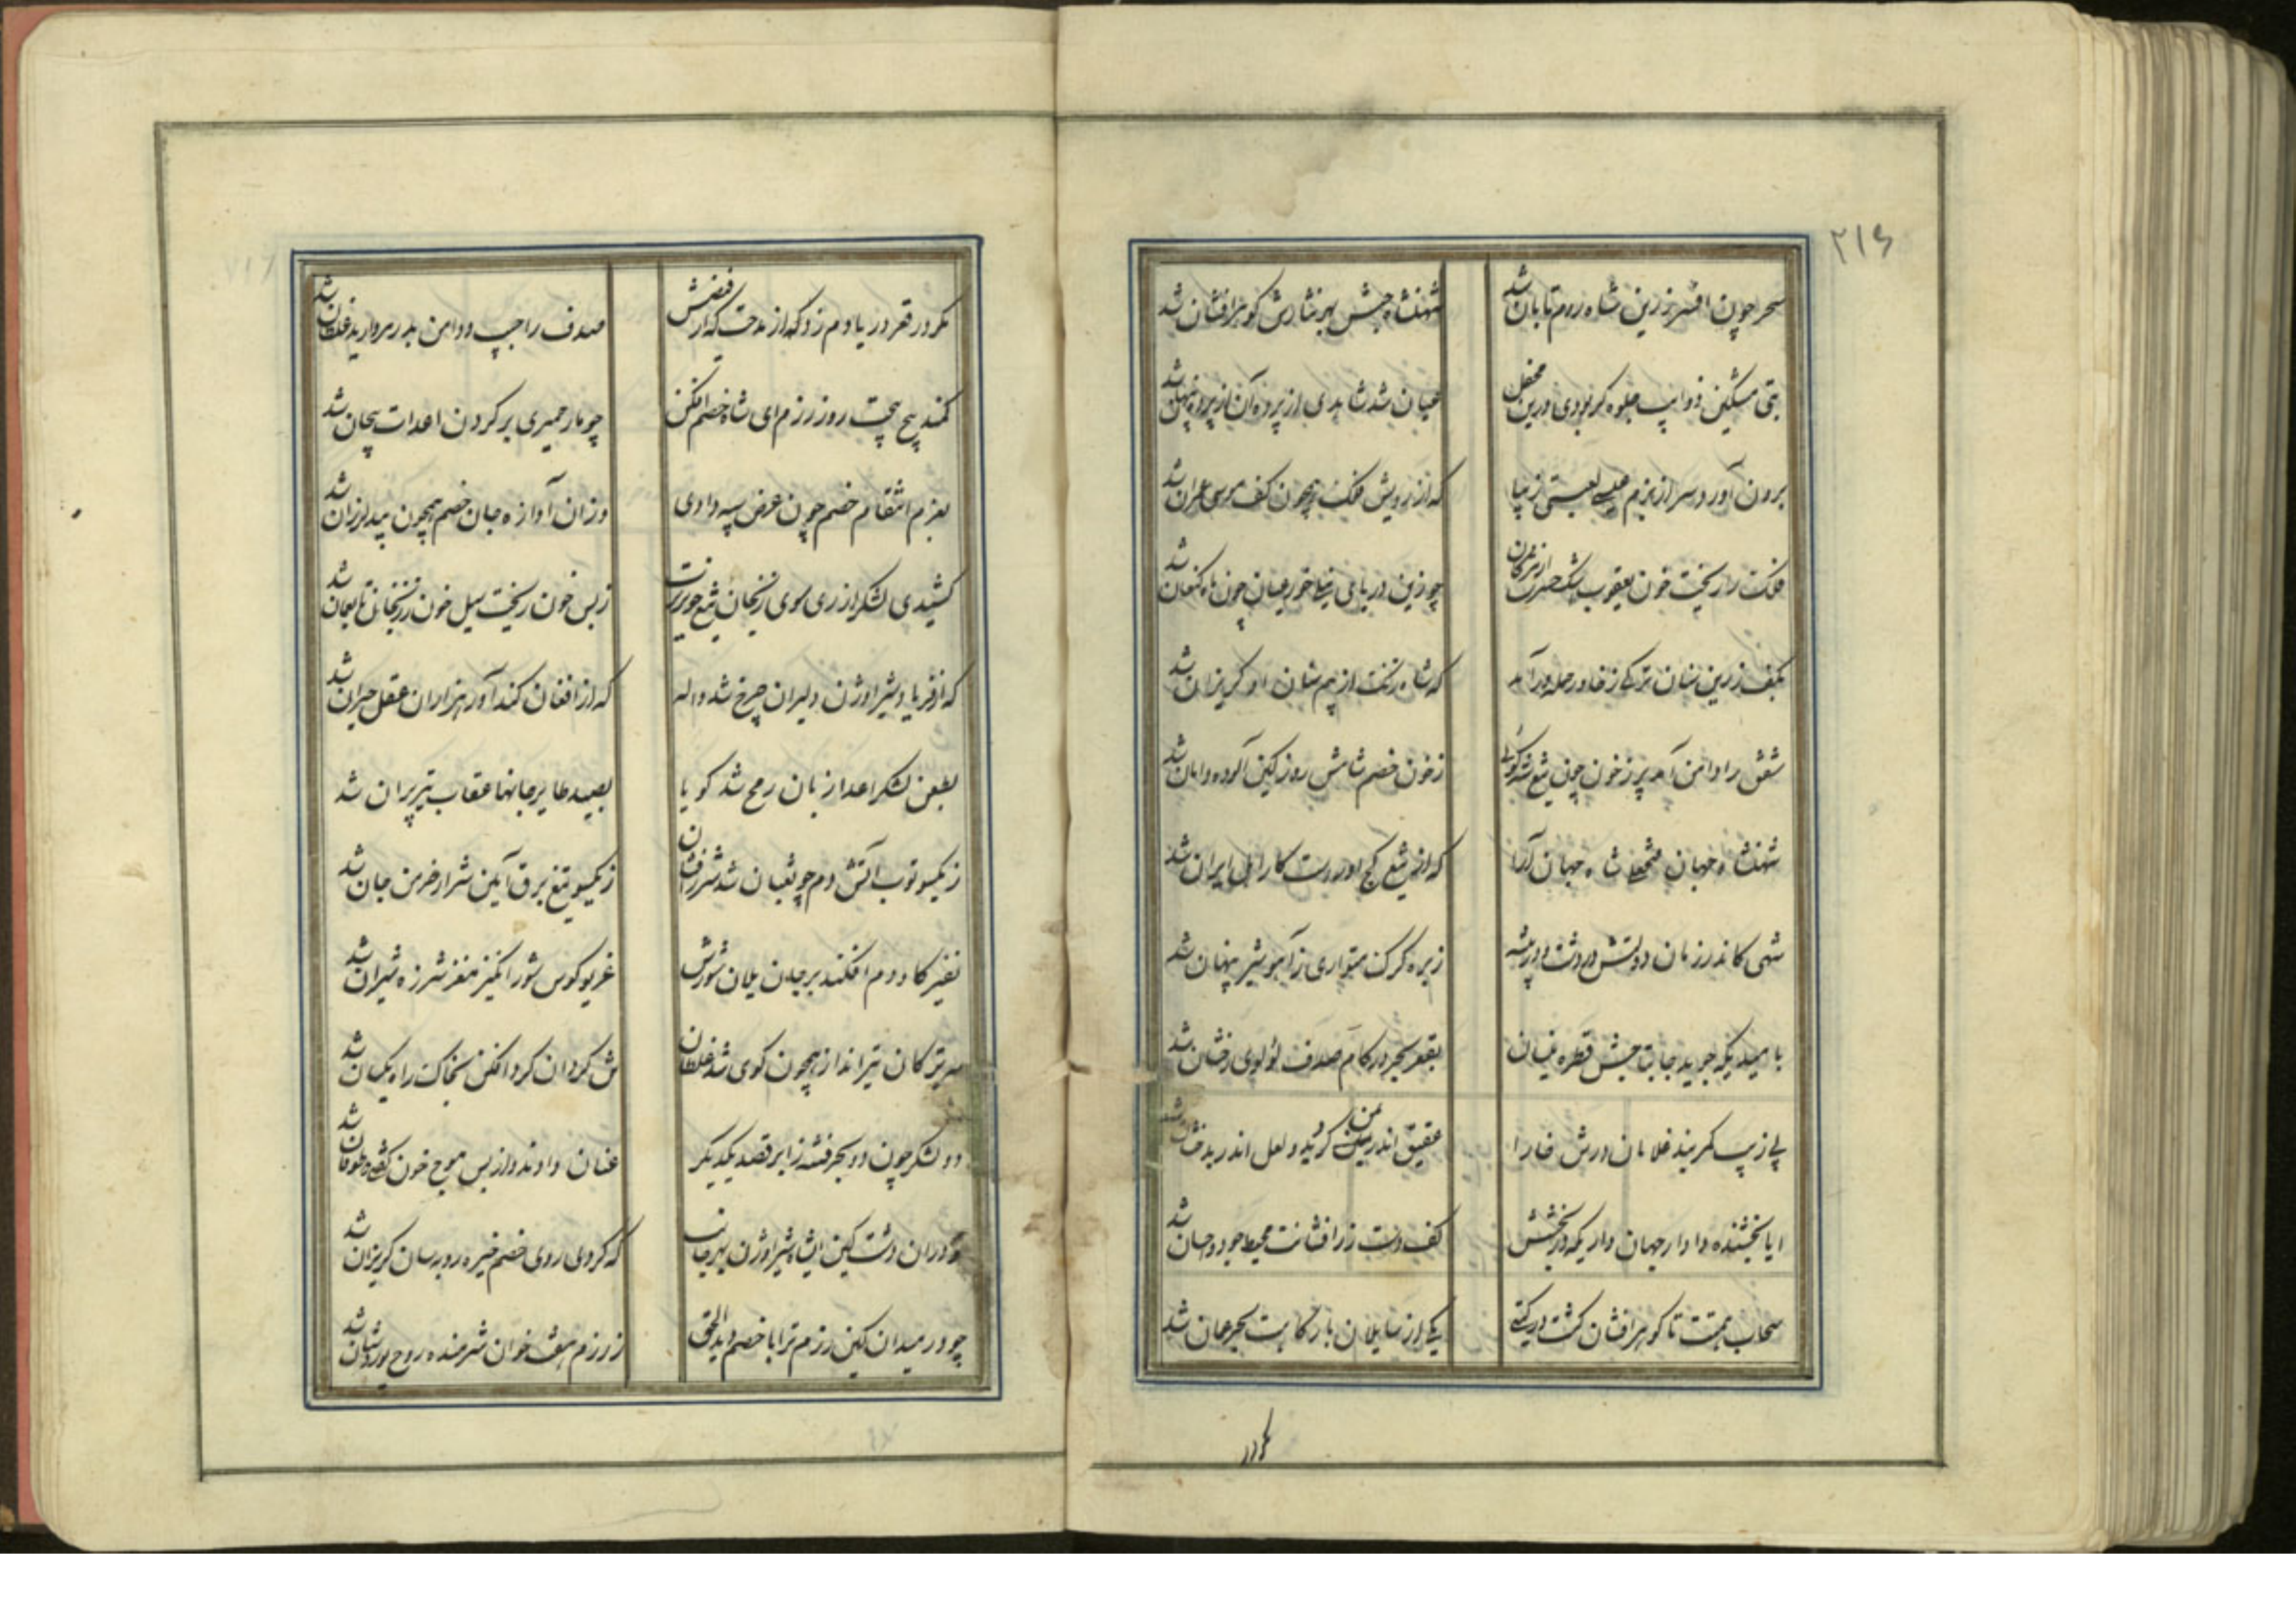 ۲۱۶
سحر چون افسر زرین شاه روم تابان شد
شهنشاه حبش بهر نثارش گوهر افشان شد
بتی مشکین ذوایب جلوه گر بودی درین محفل
عیان شد شاهدی از پرده آن از پرده پنهان شد
برون آورد سر از بزم عیسی لعبتی زیبا
که از رویش فلک همچون کف موسی عمران شد
فلک را ریخت خون یعقوب اشک حسرت از مژگان
چو زین دریای نیلی خور عیان چون ماه کنعان شد
بکف زرین سنان ترکی ز خاور حمله ور آمد
که شاه زنگ از بیم سنان او گریزان شد
شفق را دامن آمد پر ز خون چون تیغ شه گوئی
ز خون خصم شامش روز کین آلوده دامان شد
شهنشاه جهان فتحعلی شاه جهان آرا
که از تیغ کج او راست کار اهل ایران شد
شهی کاندر زمان دولتش در دشت و در بیشه
ز بره گرگ متواری ز آهو شیر پنهان شد
بامیدیکه جوید جا بتاجش قطره نیسان
بقعر بحر در کام صدف لولوی رخشان شد
پی زیب کمر بند غلامان درش خارا
عقیق اندر یمن گردید و لعل اندر بدخشان شد
ایا بخشنده دادار جهان داریکه در بخشش
کف دست زر افشانت محیط جود و احسان شد
سحاب همتت تا گوهر افشان گشت در گیتی
یکی از سایلان بارگاهت بحر عمان شد
مگر در
مگر در قعر دریا دم زد که از مدحت که از فیضش
صدف را جیب و دامن پر ز مروارید غلطان شد
کمند پیچ پیچت روز رزم ای شاه خصم افکن
چو مار حمیری بر گردن اعدات پیچان شد
بعزم انتقام خصم چون عرض سپه دادی
وزان آوازه جان خصم همچون بید لرزان شد
کشیدی لشکر از ری سوی زنجان
ز بس خون ریخت سیل خون ز زنجان تا
که از فریاد شیر اوژن دلیران چرخ شد واله
که از افغان کند آور هزاران عقل حیران شد
بطعن لشکر اعدا زبان رمح شد گویا
بصید طایر جانها عقاب تیر پران شد
ز یکسو توپ آتش دم چو ثعبان شد شرر افشان
ز یکسو تیغ برق آیین شرار خرمن جان شد
نفیر گاودم افکند بر جان یلان شورش
غریو کوس شور انگیز مغز شرزه شیران شد
سر ترکان تیر انداز همچون گوی شد غلطان
تن گردان گرد افکن بخاک راه یکسان شد
دو لشکر چون دو بحر فتنه زا بر قصد یکدیگر
عنان دادند و از بس موج خون طوفان شد
در آن دشت کین ایشاه شیر اوژن
که کردی روی خصم خیره روبه سان گریزان شد
چو در میدان کین رزم ترا با خصم دید الحق
ز رزم هفت خوان شرمنده روح پور دستان شد